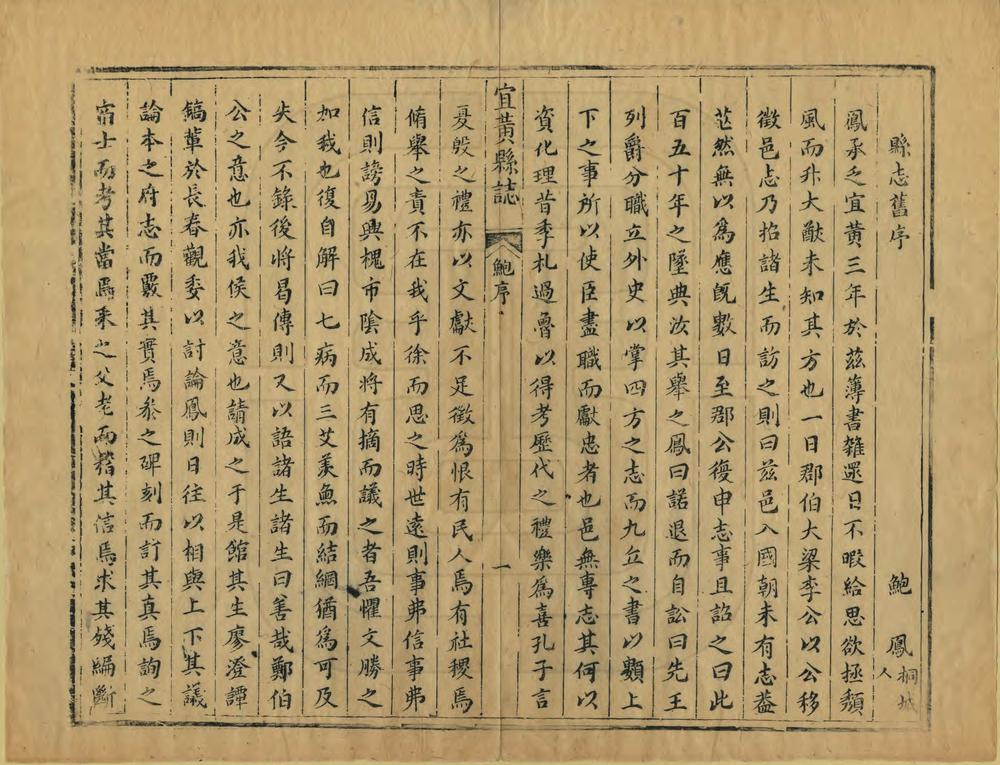 縣志舊序
鮑鳳桐城人
鳳承乏宜黃三年於茲簿書雜遝日不暇給思欲拯頹
風而升大猷未知其方也一日郡伯大梁李公以公移
徵邑志乃招諸生而訪之則曰茲邑入國朝未有志益
茫然無以爲應旣數日至郡公復申志事且詔之曰此
百五十年之墜典汝其舉之鳳曰諾退而自訟曰先王
列爵分職立外史以掌四方之志而九丘之書以顯上
下之事所以使臣盡職而獻忠者也邑無專志其何以
資化理昔季札過魯以得考歷代之禮樂爲喜孔子言
宜黃縣誌
鮑序
一
夏殷之禮亦以文獻不足徵爲恨有民人焉有社稷焉
脩舉之責不在我乎徐而思之時世遠則事弗信事弗
信則謗易興槐市陰成將有摘而議之者吾懼文勝之
加我也復自解曰七病而三艾羨魚而結網猶爲可及
失今不錄後將曷傳則又以語諸生諸生曰善哉鄭伯
公之意也亦我侯之意也請成之于是館其生廖澄譚
鎬輩於長春觀委以討論鳳則日往以相與上下其議
論本之府志而覈其實焉參之碑刻而訂其真焉詢之
宿士而考其當焉采之父老而稽其信焉求其殘編斷